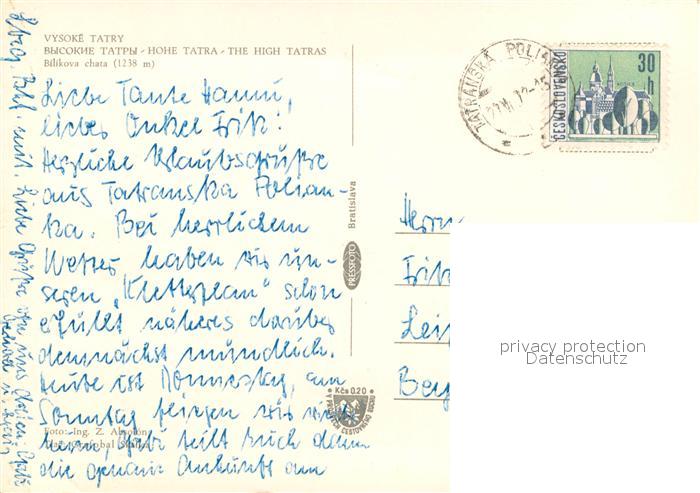 VYSOKÉ TATRY
ВЫСОКИЕ ТАТРЫ - HOHE TATRA - THE HIGH TATRAS
Bílikova chata (1238 m)
Liebe Tante Hanni,
lieber Onkel Fritz!
Herzliche Urlaubsgrüße
aus Tatranska Polian-
ka. Bei herrlichem
Wetter haben wir un-
seren „Kletterplan“ schon
erfüllt näheres darüber
demnächst mündlich.
Heute ist Donnerstag, am
Sonntag fliegen wir
Gabi teilt Euch dann
die genaue Ankunft am
mit. Liebe Grüße von uns
Foto: Ing. Z.
Bratislava
PRESSFOTO
Kčs 0.20
TATRANSKÁ POLIANKA
ČESKOSLOVENSKO
30
h
Herrn
Fritz
Leip
Berg
privacy protection
Datenschutz